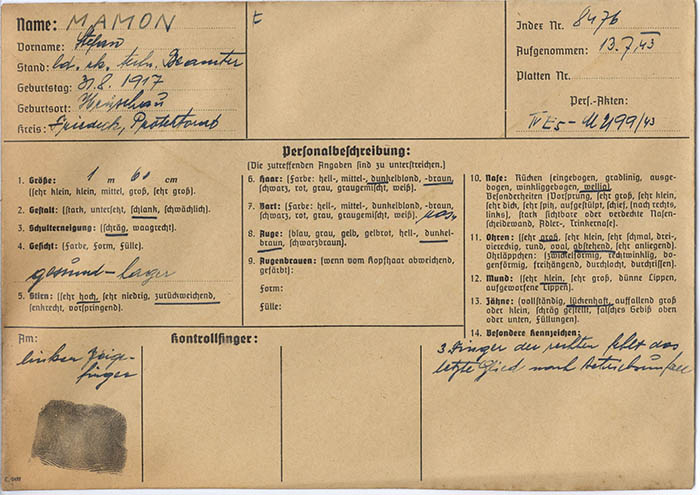 Name: MAMON
Vorname: Stefan
Stand: ld. rk. techn. Beamter
Geburtstag: 31.8.1917
Geburtsort:
Kreis: Friedeck, Protektorat
E
Index Nr. 8476
Aufgenommen: 13.7.43
Platten Nr.
Pers.-Akten:
IV E5 - U 2199/43
Personalbeschreibung:
(Die zutreffenden Angaben sind zu unterstreichen.)
1. Größe: 1 m 60 cm
(sehr klein, klein, mittel, groß, sehr groß).
2. Gestalt: (stark, untersetzt, schlank, schwächlich).
3. Schulterneigung: (schräg, waagrecht).
4. Gesicht: (Farbe, Form, Fülle).
gesund-
5. Stirn: (sehr hoch, sehr niedrig, zurückweichend,
senkrecht, vorspringend).
6. Haar: (Farbe: hell-, mittel-, dunkelblond, -braun,
schwarz, rot, grau, graugemischt, weiß).
7. Bart: (Farbe: hell-, mittel-, dunkelblond, -braun,
schwarz, rot, grau, graugemischt, weiß).
8. Auge: (blau, grau, gelb, gelbrot, hell-, dunkel-
braun, schwarzbraun).
9. Augenbrauen: (wenn vom Kopfhaar abweichend,
gefärbt):
Form:
Fülle:
10. Nase: Rücken (eingebogen, gradlinig, ausge-
bogen, winkliggebogen, wellig).
Besonderheiten (Vorsprung, sehr groß, sehr klein,
sehr dick, sehr spitz, aufgestülpt, schief, (nach rechts,
links), stark sichtbare oder verdeckte Nasen-
scheidewand, Adler-, Trinkernase).
11. Ohren: (sehr groß, sehr klein, sehr schmal, drei-,
viereckig, rund, oval, abstehend, sehr anliegend).
Ohrläppchen: (zwickelförmig, rechtwinklig, bo-
genförmig, freihängend, durchlocht, durchrissen).
12. Mund: (sehr klein, sehr groß, dünne Lippen,
aufgeworfene Lippen).
13. Zähne: (vollständig, lückenhaft, auffallend groß
oder klein, schräg gestellt, falsches Gebiß oben
oder unten, Füllungen).
14. Besondere Kennzeichen:
3 Finger der rechten fehlt das
letzte Glied nach
Am:
linken Zeige-
finger
Kontrollfinger: